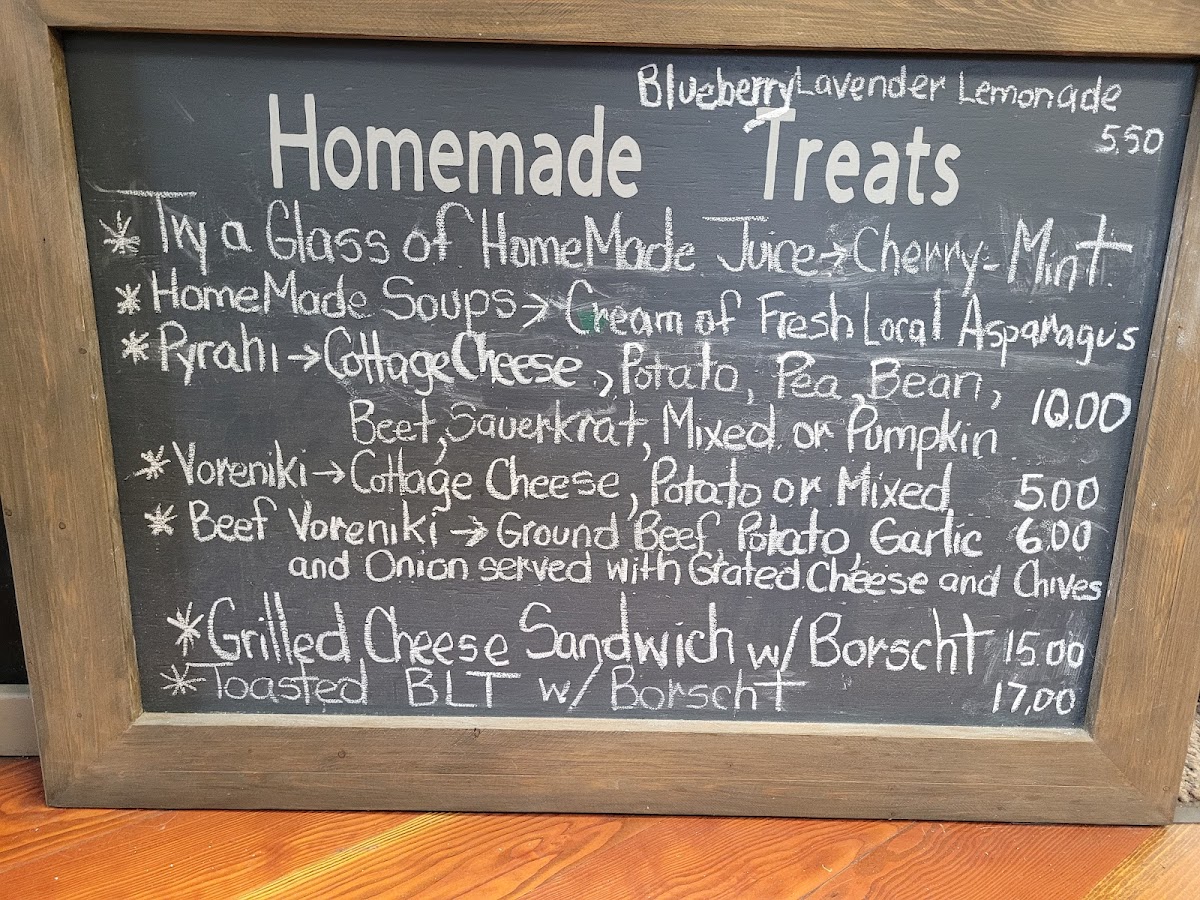 Blueberry Lavender Lemonade
5.50
Homemade Treats
* Try a Glass of HomeMade Juice → Cherry-Mint
* HomeMade Soups → Cream of Fresh Local Asparagus
* Pyrahi → Cottage Cheese, Potato, Pea, Bean,
Beet, Sauerkrat, Mixed or Pumpkin 10.00
* Voreniki → Cottage Cheese, Potato or Mixed 5.00
* Beef Voreniki → Ground Beef, Potato, Garlic 6.00
and Onion served with Grated Cheese and Chives
* Grilled Cheese Sandwich w/ Borscht 15.00
* Toasted BLT w/ Borscht 17.00